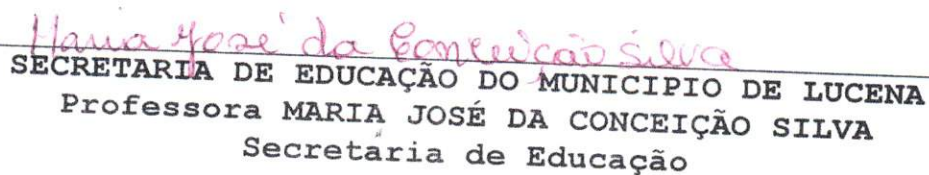 Maria José da Conceição Silva
SECRETARIA DE EDUCAÇÃO DO MUNICIPIO DE LUCENA
Professora MARIA JOSÉ DA CONCEIÇÃO SILVA
Secretaria de Educação